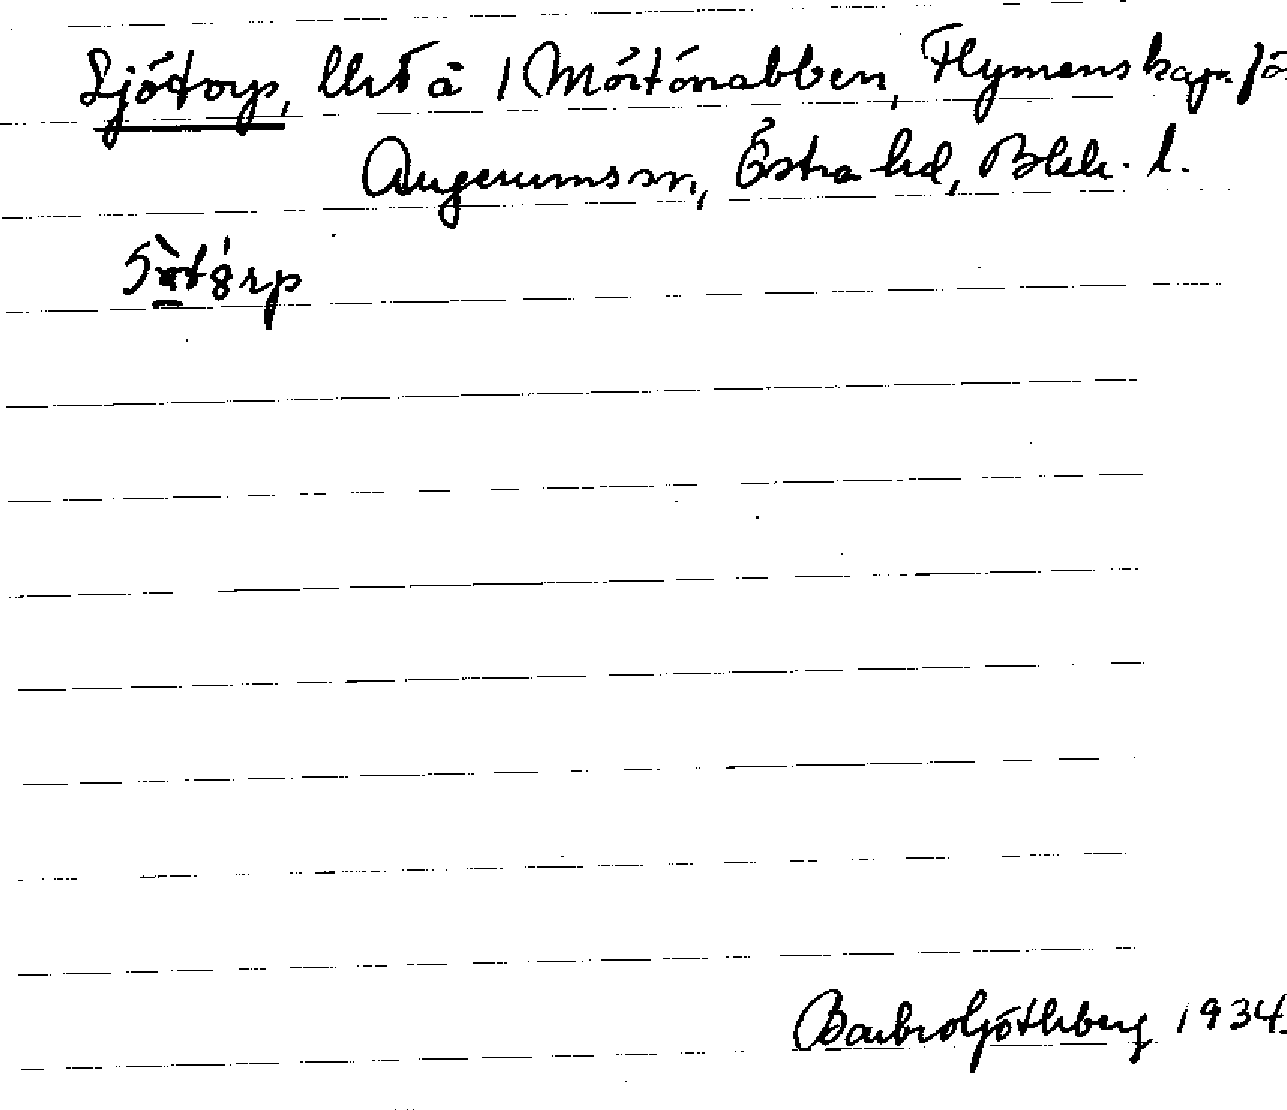 Sjötorp, Urå å 1 Mörtönabben, Flymenskap. fö
Augerumssn, Östra hd, Blek. l.
Barbro Göthberg 1934.